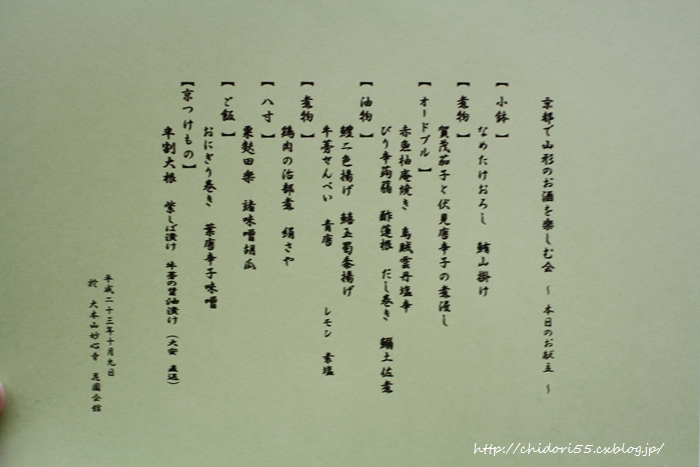 京都で山形のお酒を楽しむ会 ～ 本日のお献立 ～
【小鉢】
なめたけおろし 鮪山掛け
【煮物】
賀茂茄子と伏見唐辛子の煮浸し
【オードブル】
赤魚柚庵焼き 烏賊雲丹塩辛
ぴり辛蒟蒻 酢蓮根 だし巻き 鰯土佐煮
【油物】
鱧二色揚げ 鱚玉蜀黍揚げ
牛蒡せんべい 青唐 レモン 素塩
【煮物】
鶏肉の治部煮 絹さや
【八寸】
粟麩田楽 諸味噌胡瓜
【ご飯】
おにぎり巻き 葉唐辛子味噌
【京つけもの】
辛割大根 紫しば漬け 牛蒡の醤油漬け （大安 直送）
平成二十三年十月九日
於 大本山妙心寺 花園会館
http://chidori55.cxblog.jp/